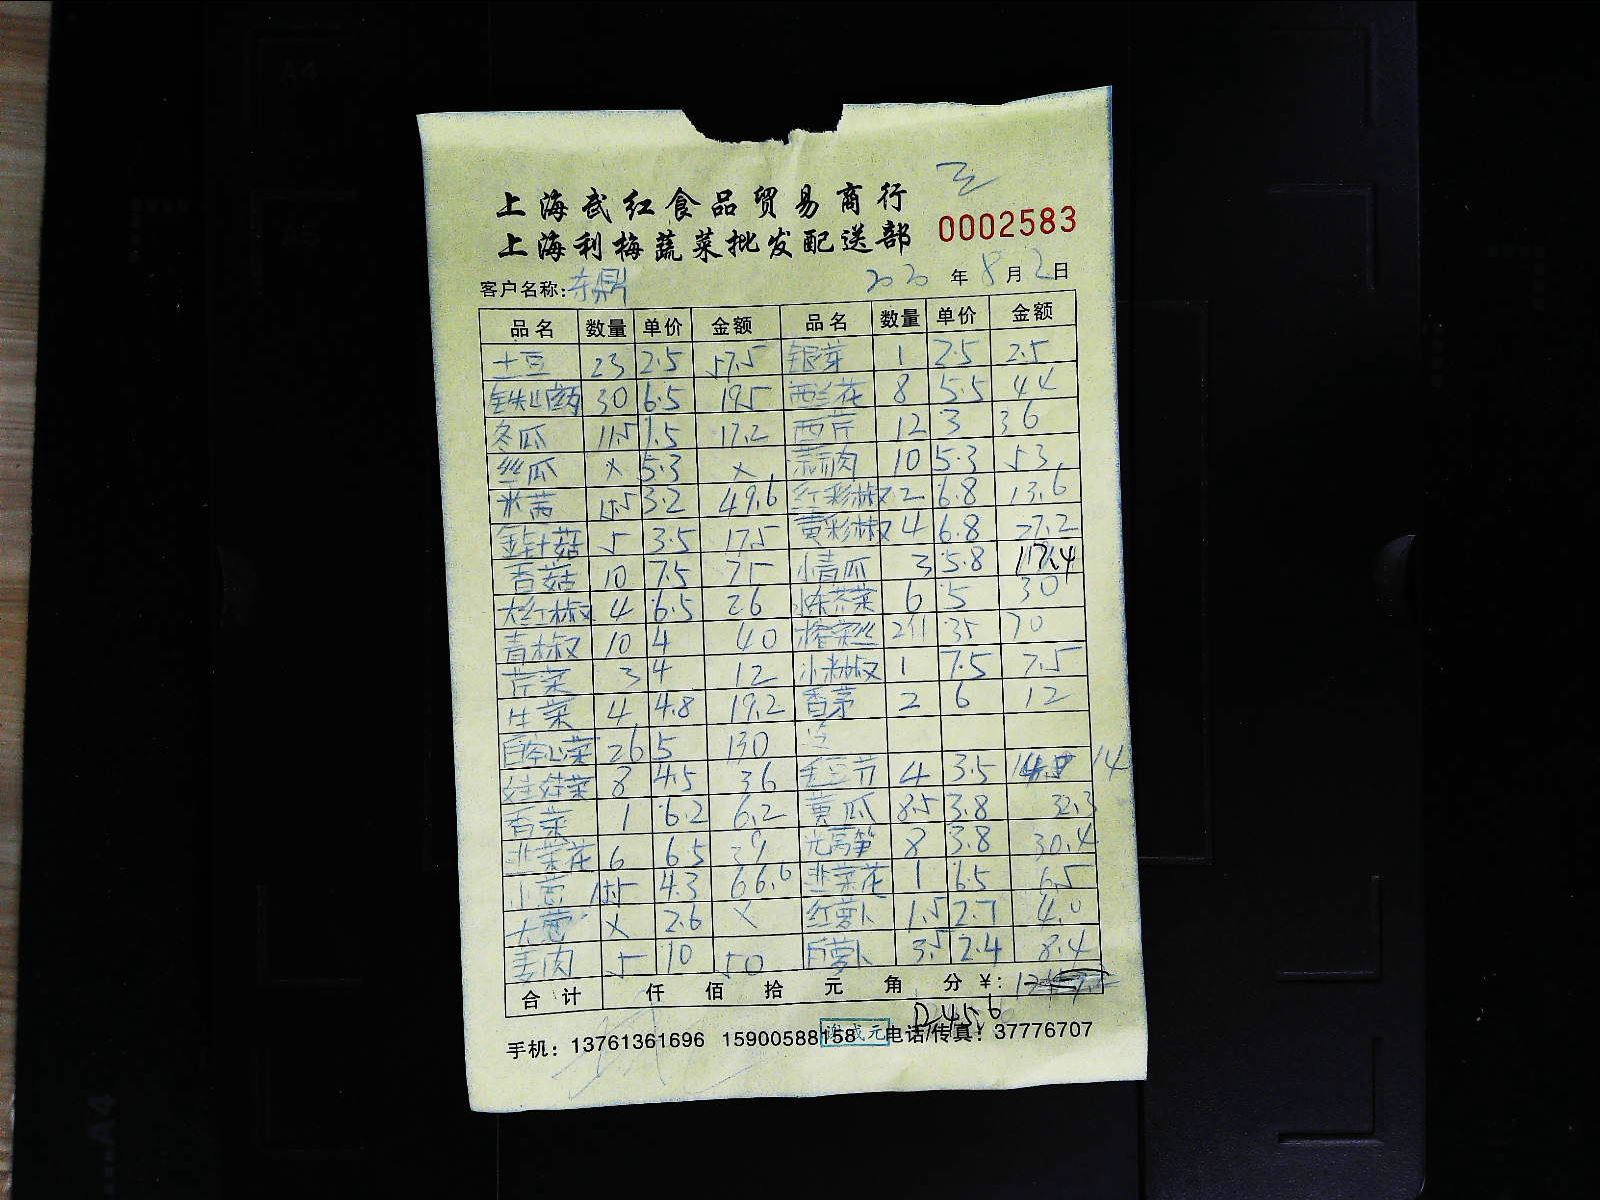 上海武红食品贸易商行
上海利梅蔬菜批发配送部 0002583
客户名称: 东鼎 2020 年 8 月 2 日
品名 数量 单价 金额 品名 数量 单价 金额
土豆 23 2.5 57.5 银芽 1 2.5 2.5
铁山药 30 6.5 195 西兰花 8 5.5 44
冬瓜 11.5 1.5 17.2 西芹 12 3 36
丝瓜 × 5.3 × 蒜肉 10 5.3 53
米苋 15.5 3.2 49.6 红彩椒 2 6.8 13.6
金针菇 5 3.5 17.5 黄彩椒 4 6.8 27.2
香菇 10 7.5 75 小青瓜 3 5.8 17.4
大红椒 4 6.5 26 6 5 30
青椒 10 4 40 榨菜丝 35 70
芹菜 3 4 12 小米椒 1 7.5 7.5
生菜 4 4.8 19.2 香茅 2 6 12
白空心菜 26 5 130 送
娃娃菜 8 4.5 36 毛豆节 4 3.5 14
香菜 1 6.2 6.2 黄瓜 8.5 3.8 32.3
韭菜花 6 6.5 39 光莴笋 8 3.8 30.4
小葱 15.5 4.3 66.6 韭菜花 1 6.5 6.5
大葱 × 2.6 × 红萝卜 1.5 2.7 4.0
姜肉 5 10 50 白萝卜 3.5 2.4 8.4
合计 仟 佰 拾 元 角 分 ¥:
1245.6
手机: 13761361696 15900588158 电话/传真: 37776707